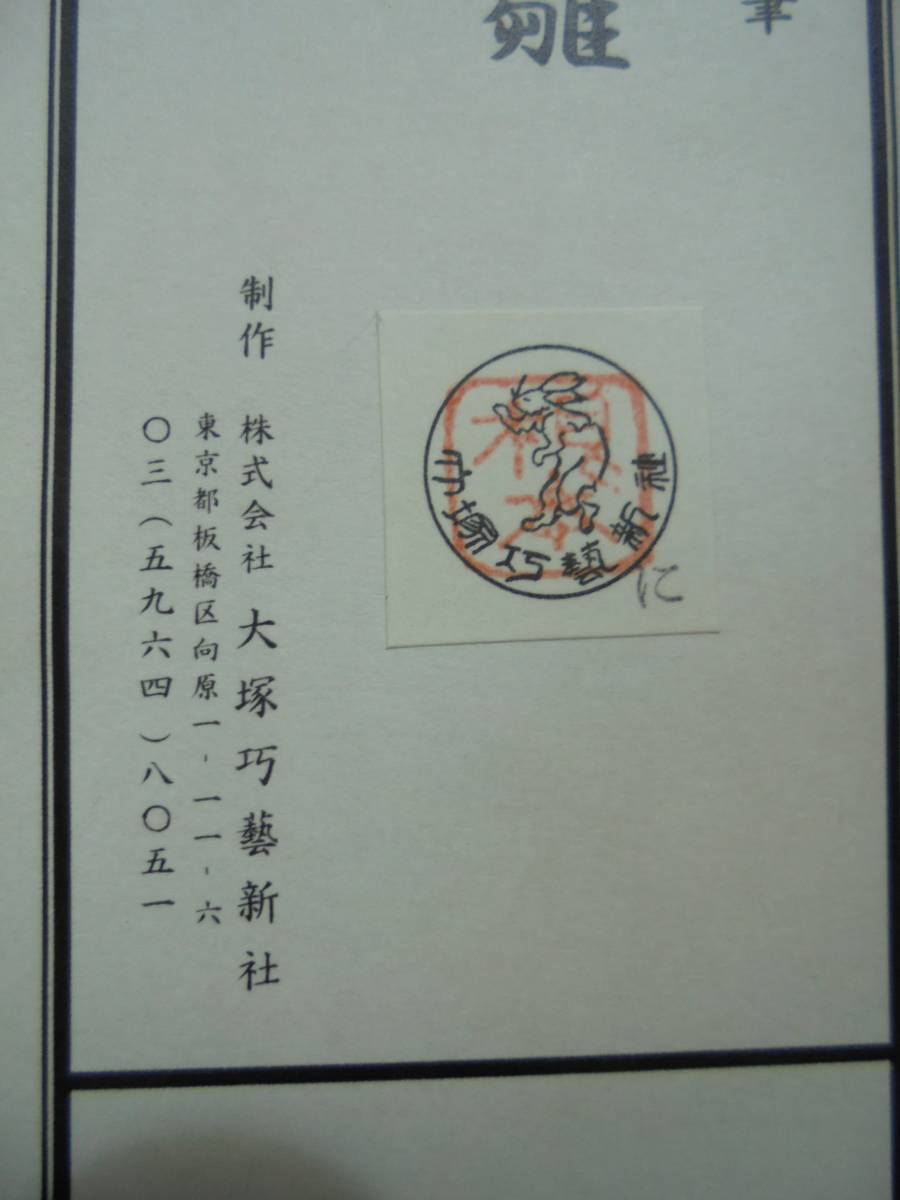 筆
雛
大塚巧藝新社
に
制作 株式会社 大塚巧藝新社
東京都板橋区向原一-一一-六
〇三(五九六四)八〇五一